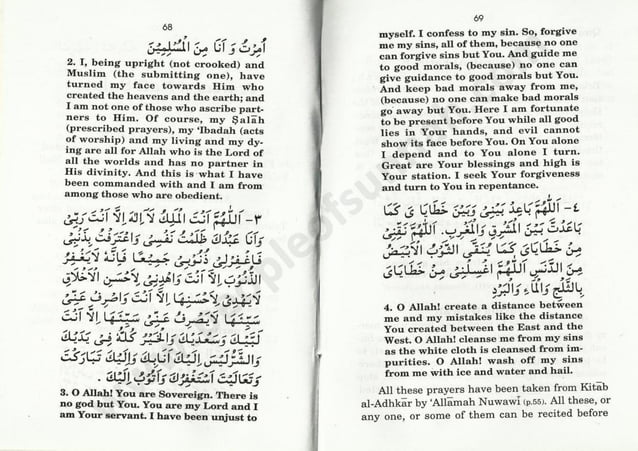 68
اُمِرْتُ وَ اَنَا مِنَ الْمُسْلِمِيْنَ
2. I, being upright (not crooked) and
Muslim (the submitting one), have
turned my face towards Him who
created the heavens and the earth; and
I am not one of those who ascribe part-
ners to Him. Of course, my Ṣalāh
(prescribed prayers), my 'Ibadah (acts
of worship) and my living and my dy-
ing are all for Allah who is the Lord of
all the worlds and has no partner in
His divinity. And this is what I have
been commanded with and I am from
among those who are obedient.
٣- اَللّٰهُمَّ اَنْتَ الْمَلِكُ لَا اِلٰهَ اِلَّا اَنْتَ رَبِّىْ
وَاَنَا عَبْدُكَ ظَلَمْتُ نَفْسِىْ وَاعْتَرَفْتُ بِذَنْبِىْ
فَاغْفِرْلِىْ ذُنُوْبِىْ جَمِيْعًا فَاِنَّهٗ لَايَغْفِرُ
الذُّنُوْبَ اِلَّا اَنْتَ وَاهْدِنِىْ لِاَحْسَنِ الْاَخْلَاقِ
لَايَهْدِىْ لِاَحْسَنِهَا اِلَّا اَنْتَ وَاصْرِفْ عَنِّىْ
سَيِّئَهَا لَايَصْرِفُ عَنِّىْ سَيِّئَهَا اِلَّا اَنْتَ
لَبَّيْكَ وَسَعْدَيْكَ وَالْخَيْرُ كُلُّهٗ فِىْ يَدَيْكَ
وَالشَّرُّ لَيْسَ اِلَيْكَ اَنَابِكَ وَاِلَيْكَ تَبَارَكْتَ
وَتَعَالَيْتَ اَسْتَغْفِرُكَ وَاَتُوْبُ اِلَيْكَ .
3. O Allah! You are Sovereign. There is
no god but You. You are my Lord and I
am Your servant. I have been unjust to
69
myself. I confess to my sin. So, forgive
me my sins, all of them, because no one
can forgive sins but You. And guide me
to good morals, (because) no one can
give guidance to good morals but You.
And keep bad morals away from me,
(because) no one can make bad morals
go away but You. Here I am fortunate
to be present before You while all good
lies in Your hands, and evil cannot
show its face before You. On You alone
I depend and to You alone I turn.
Great are Your blessings and high is
Your station. I seek Your forgiveness
and turn to You in repentance.
٤- اَللّٰهُمَّ بَاعِدْ بَيْنِىْ وَبَيْنَ خَطَايَا ىَ كَمَا
بَاعَدْتَّ بَيْنَ الْمَشْرِقِ وَالْمَغْرِبِ. اَللّٰهُمَّ نَقِّنِىْ
مِنْ خَطَايَاىَ كَمَا يُنَقَّى الثَّوْبُ الْاَبْيَضُ
مِنَ الدَّنَسِ اَللّٰهُمَّ اغْسِلْنِىْ مِنْ خَطَايَاىَ
بِالثَّلْجِ وَالْمَاءِ وَالْبَرَدِ
4. O Allah! create a distance between
me and my mistakes like the distance
You created between the East and the
West. O Allah! cleanse me from my sins
as the white cloth is cleansed from im-
purities. O Allah! wash off my sins
from me with ice and water and hail.
All these prayers have been taken from Kitāb
al-Adhkār by 'Allāmah Nuwawī (p.55). All these, or
any one, or some of them can be recited before